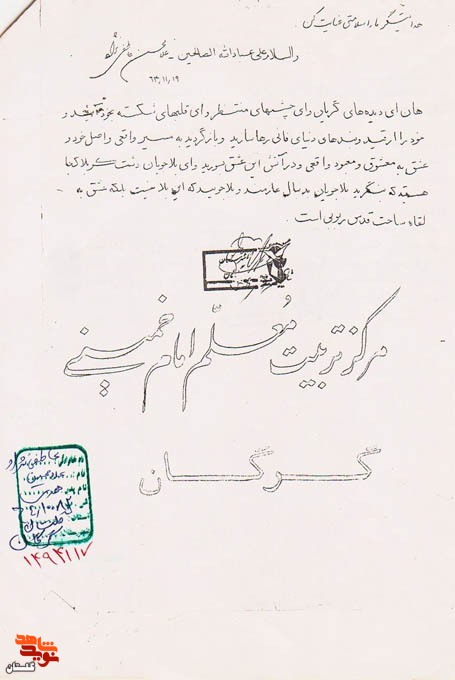 خدایا سنگرمان را سلامتی عنایت کن
والسلام علی عبادالله الصالحین - غلامحسین عاطفی نژاد
۶۳،۱۱،۱۹
هان ای دیده‌های گریان و ای چشمهای منتظر و ای قلبهای شکسته بخود آئید و
خود را از قید و بندهای دنیای فانی رها سازید و بازگردید به مسیر واقعی و اصل خود و
عشق به معشوق و معبود واقعی و در آتش این عشق بسوزید و ای بلاجویان دشت کربلا کجا
هستید که بنگرید بلاجویان بدنبال عازمند و بلا جویید که این بلا نیست بلکه عشق به
لقاء ساحت قدس ربوبی است.
مرکز تربیت معلم امام خمینی
گرگان
۱۴۹۴۱۱۷
نوید شاهد
گلستان